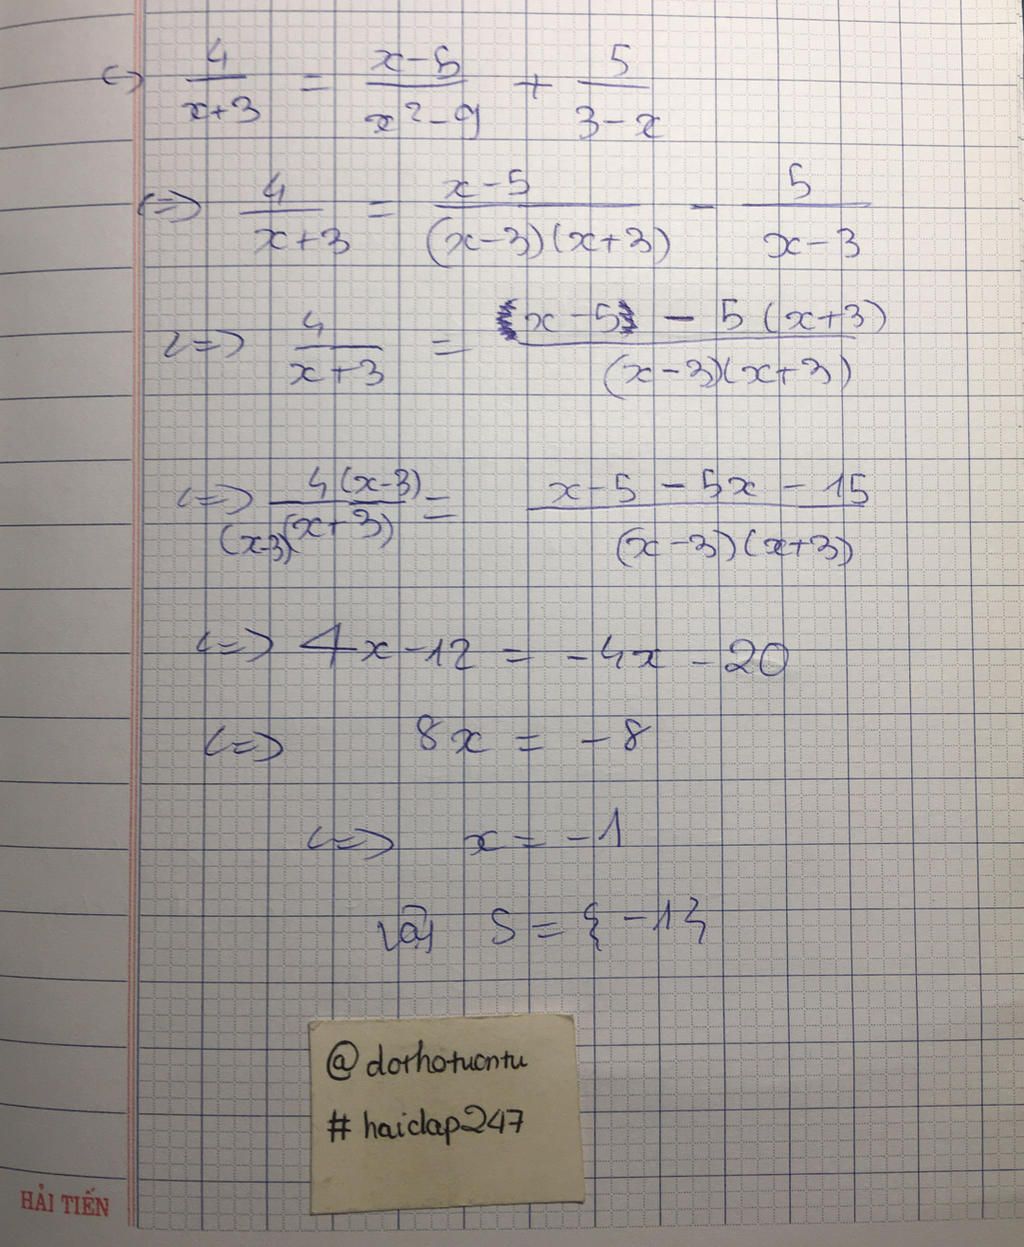 <=> 4/(x+3) = (x-5)/(x²-9) + 5/(3-x)
<=> 4/(x+3) = (x-5)/((x-3)(x+3)) - 5/(x-3)
<=> 4/(x+3) = (x-5 - 5(x+3))/((x-3)(x+3))
<=> 4(x-3)/((x-3)(x+3)) = (x-5-5x-15)/((x-3)(x+3))
<=> 4x-12 = -4x-20
<=> 8x = -8
<=> x = -1
Vậy S = {-1}
@dothotuontu
#haidap247
HẢI TIẾN